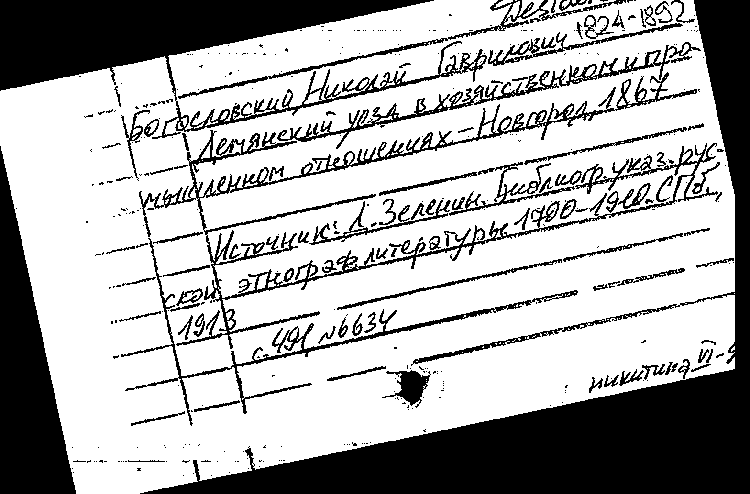 Богословский, Николай Гаврилович 1824-1892
Демянский уезд в хозяйственном и про-
мышленном отношениях - Новгород, 1867
Источник: Д. Зеленин. Библиогр. указ. рус-
ской этнограф. литературы 1700-1910. СПб.,
1913
с. 491, №6634
никитина VI-